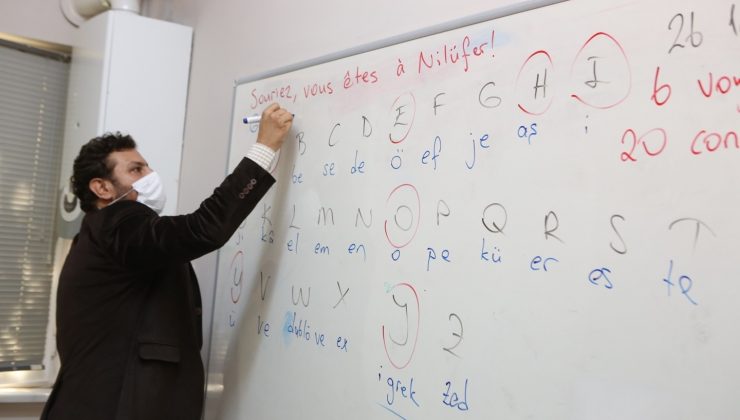 Souriez, vous êtes à Nilüfer!
26
B C D E F G H I
6
be se de ö ef je aş i
20
K L M N O P Q R S T
ka el em en o pe kü er es te
V W X Y Z
i ve dublöve ex igrek zed